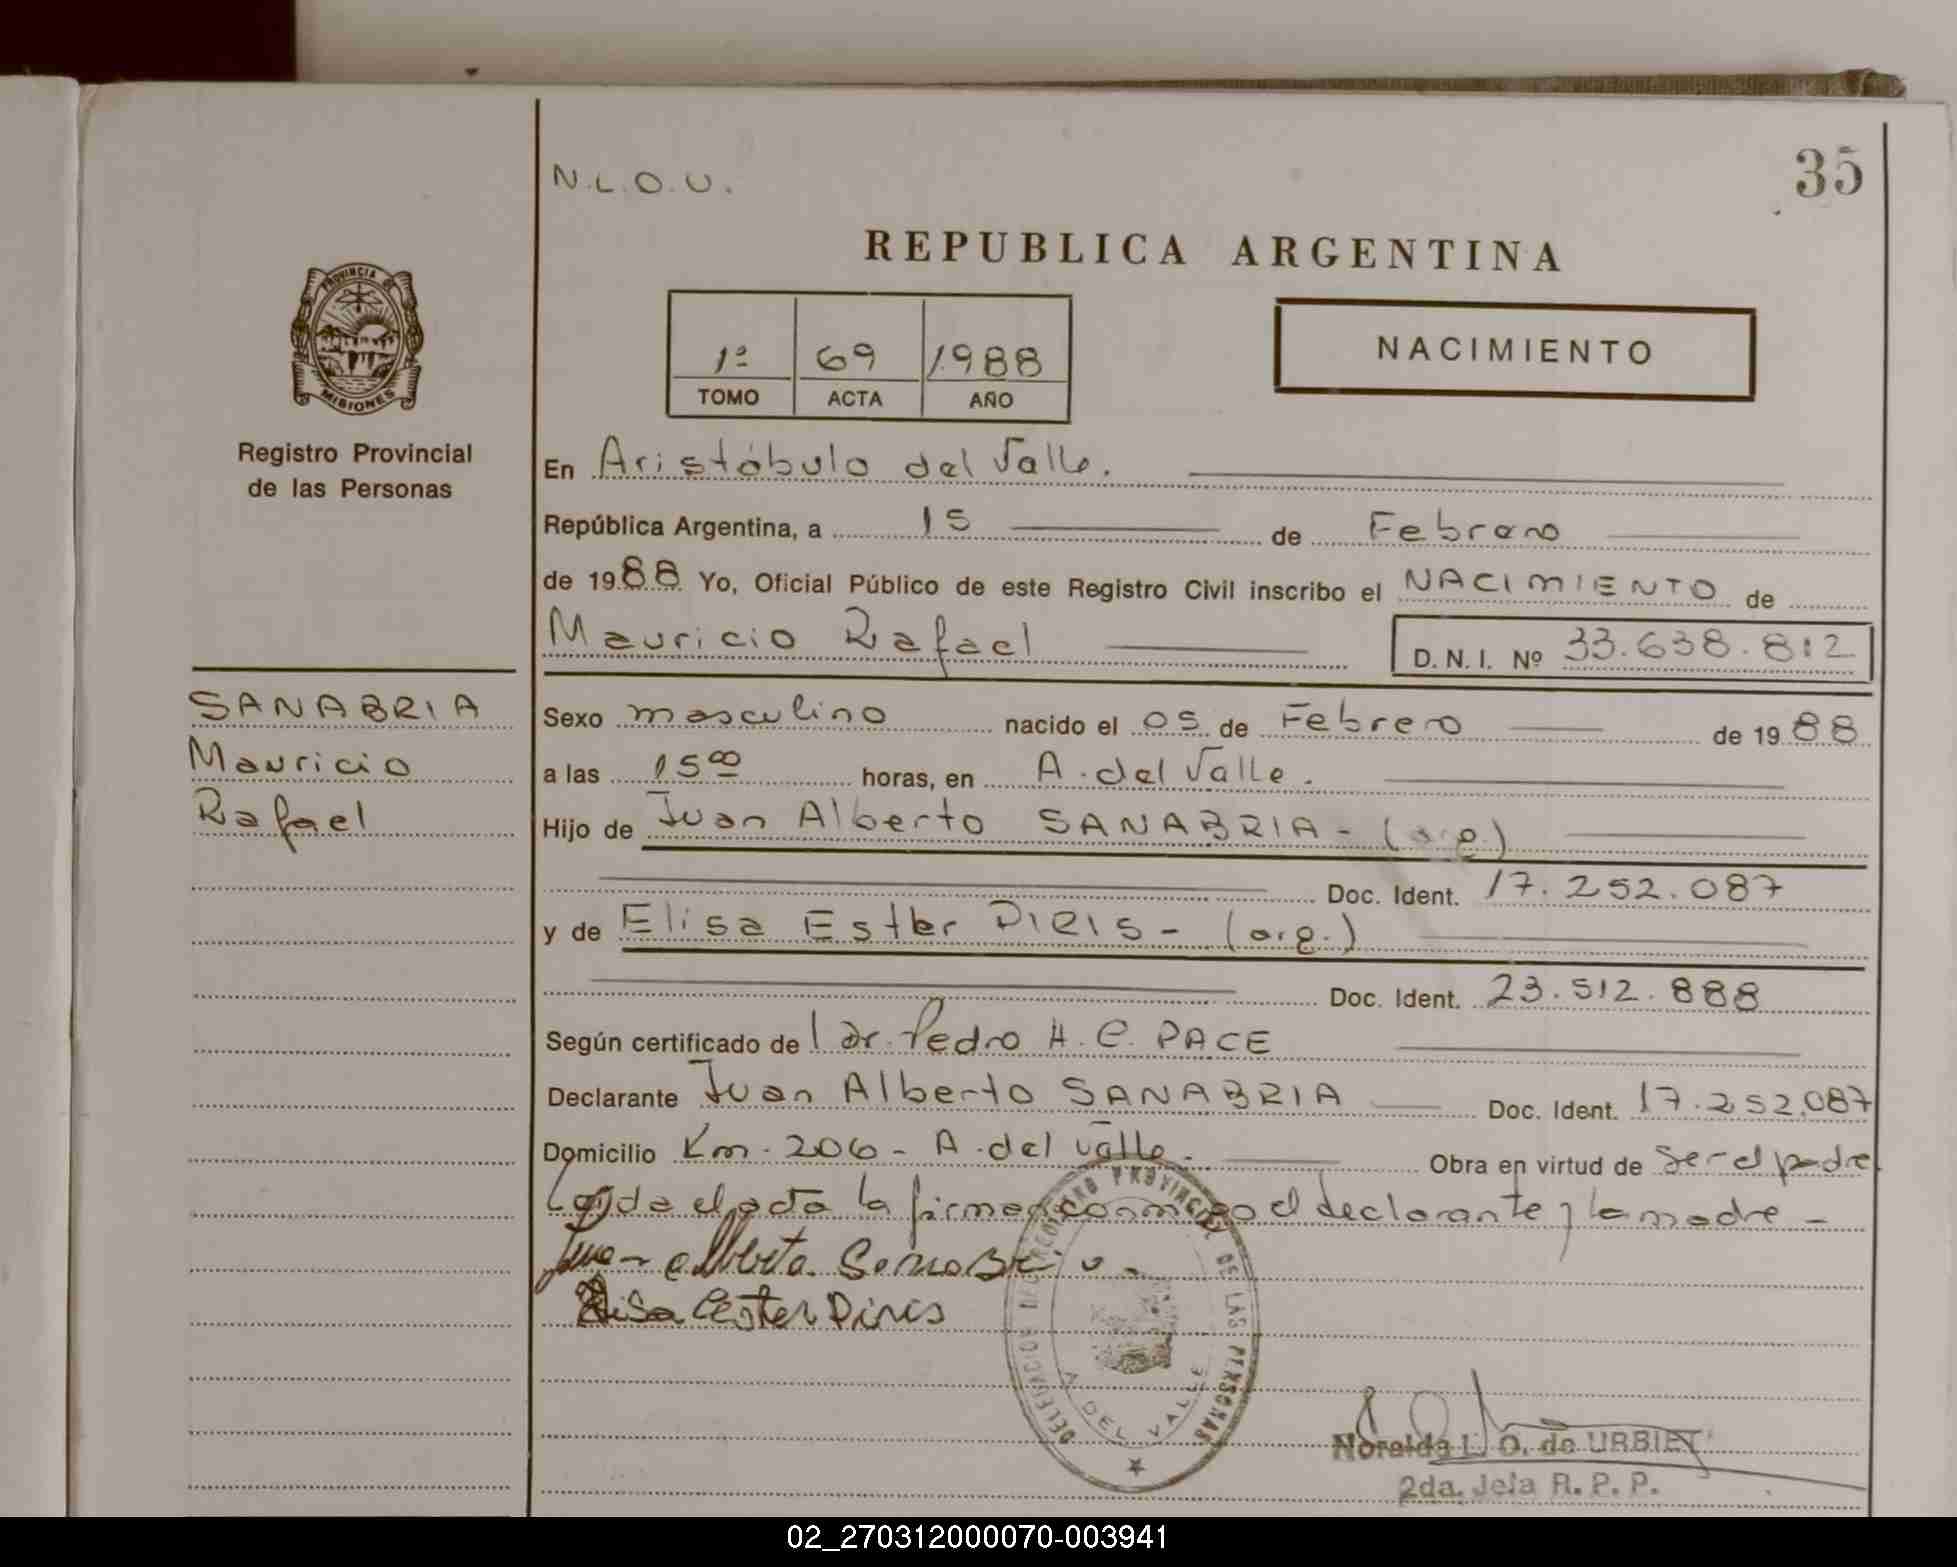 N.L.O.U.
35
REPUBLICA ARGENTINA
PROVINCIA DE
MISIONES
Registro Provincial
de las Personas
1º 69 1988
TOMO ACTA AÑO
NACIMIENTO
En Aristóbulo del Valle.
República Argentina, a 15 de Febrero
de 1988 Yo, Oficial Público de este Registro Civil inscribo el NACIMIENTO de
Mauricio Rafael D. N. I. Nº 33.638.812
SANABRIA
Mauricio
Rafael
Sexo masculino nacido el 05 de Febrero de 1988
a las 15⁰⁰ horas, en A. del Valle.
Hijo de Juan Alberto SANABRIA - (arg.)
Doc. Ident. 17.252.087
y de Elisa Ester PIRIS - (arg.)
Doc. Ident. 23.512.888
Según certificado del dr. Pedro H. C. PACE
Declarante Juan Alberto SANABRIA Doc. Ident. 17.252.087
Domicilio Km. 206 - A. del Valle. Obra en virtud de ser el padre
Leída el acta la firman conmigo el declarante y la madre -
Elisa Ester Piris
DELEGACION DEL REGISTRO PROVINCIAL DE LAS PERSONAS
A. DEL VALLE
Noralda L. O. de URBIET
2da. Jefa R. P. P.
02_270312000070-003941